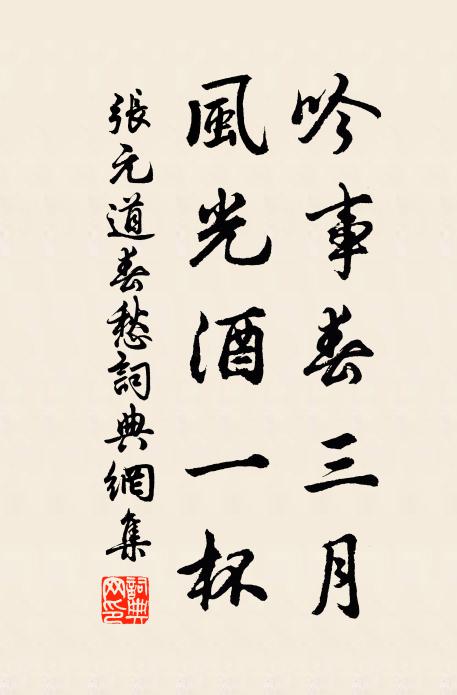 吟事春三月
風光酒一杯
張元道春愁詞典網集
詞典